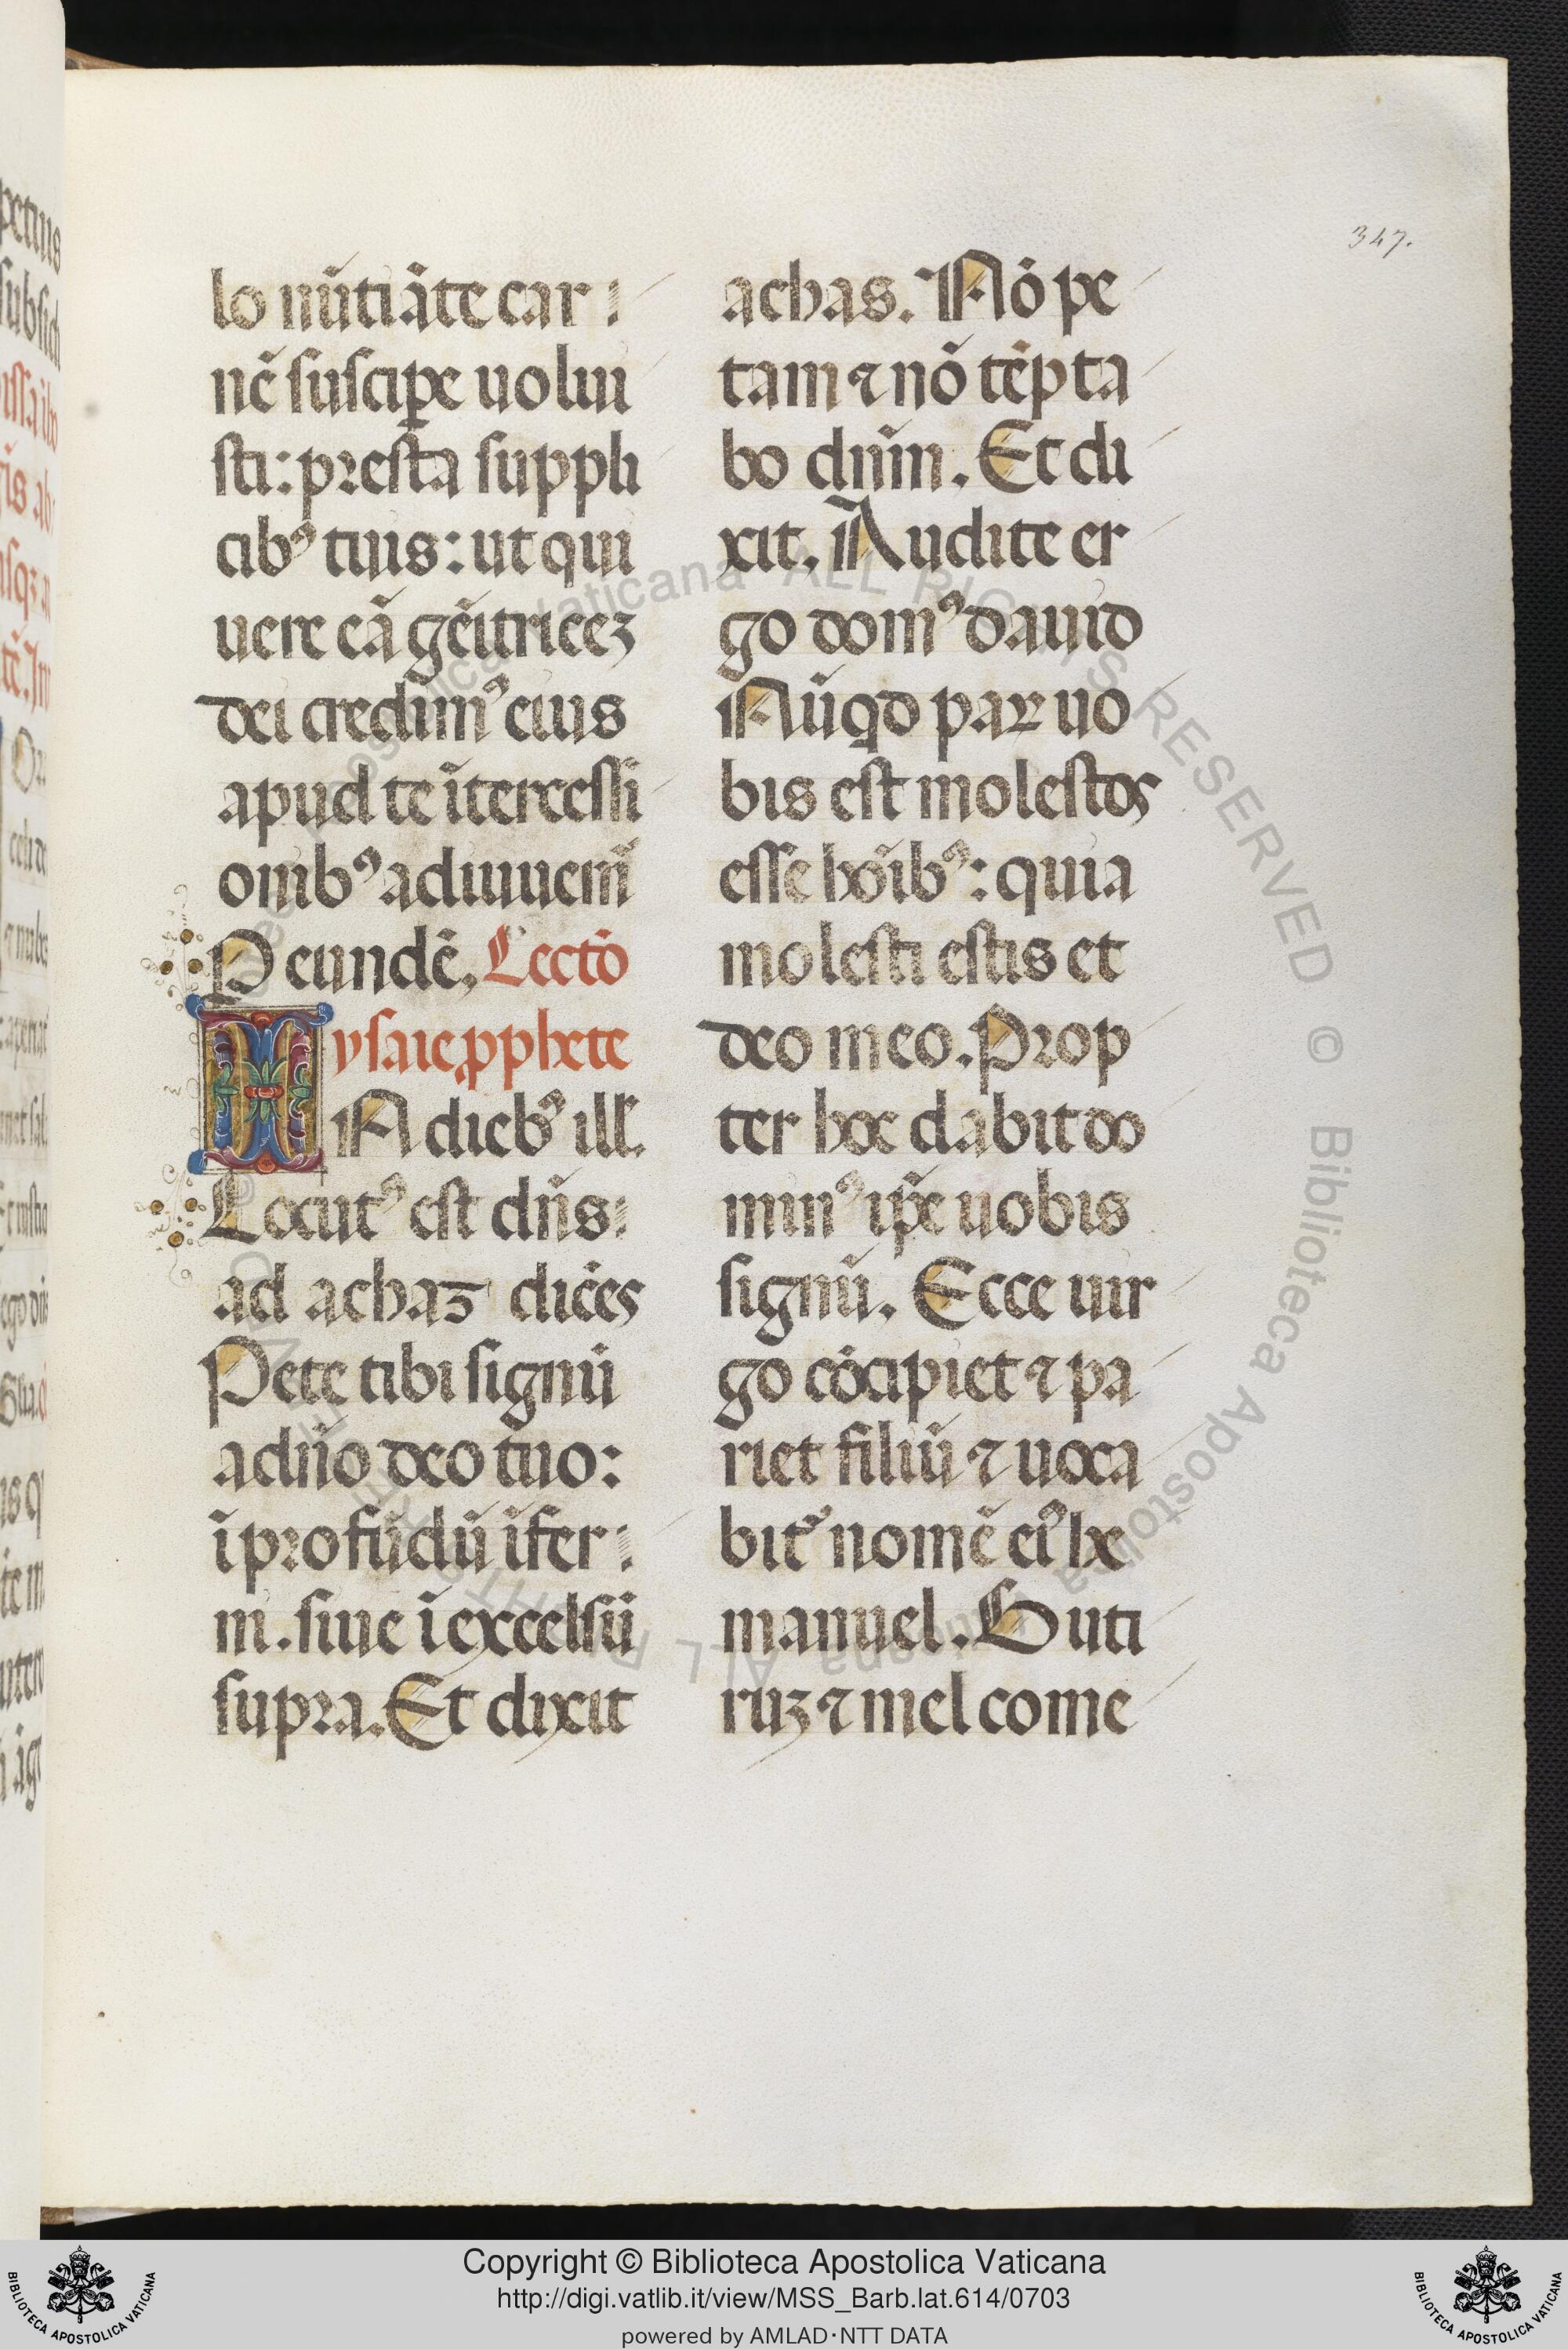 347.
lo nũtiãte car
nẽ suscipe uolui
sti: presta suppli
cibꝰ tuis: ut qui
uere eã gẽitriceꝫ
dei credimꝰ eius
apud te ĩtercessi
onibꝰ adiuuem̃
P eundẽ. Lectõ
ysaie ꝓphete
IN diebꝰ ill.
Locutꝰ est dñs:
ad achaz dicẽs
Pete tibi signũ
a dño deo tuo:
ĩ profũdũ ĩfer
ni. siue ĩ excelsũ
supra. Et dixit
achas. Nõ pe
tam ⁊ nõ tẽpta
bo dñm. Et di
xit. Audite er
go domꝰ dauid
Nũqd paꝝ uo
bis est molestos
esse hoĩbꝰ: quia
molesti estis et
deo meo. Prop
ter hoc dabit do
minꝰ ip̃e uobis
signũ. Ecce uir
go cõcipiet ⁊ pa
riet filiũ ⁊ uoca
bit᷑ nomẽ eiꝰ he
manuel. Buti
ruꝫ ⁊ mel come
Copyright © Biblioteca Apostolica Vaticana
http://digi.vatlib.it/view/MSS_Barb.lat.614/0703
powered by AMLAD·NTT DATA
BIBLIOTECA APOSTOLICA VATICANA
BIBLIOTECA APOSTOLICA VATICANA